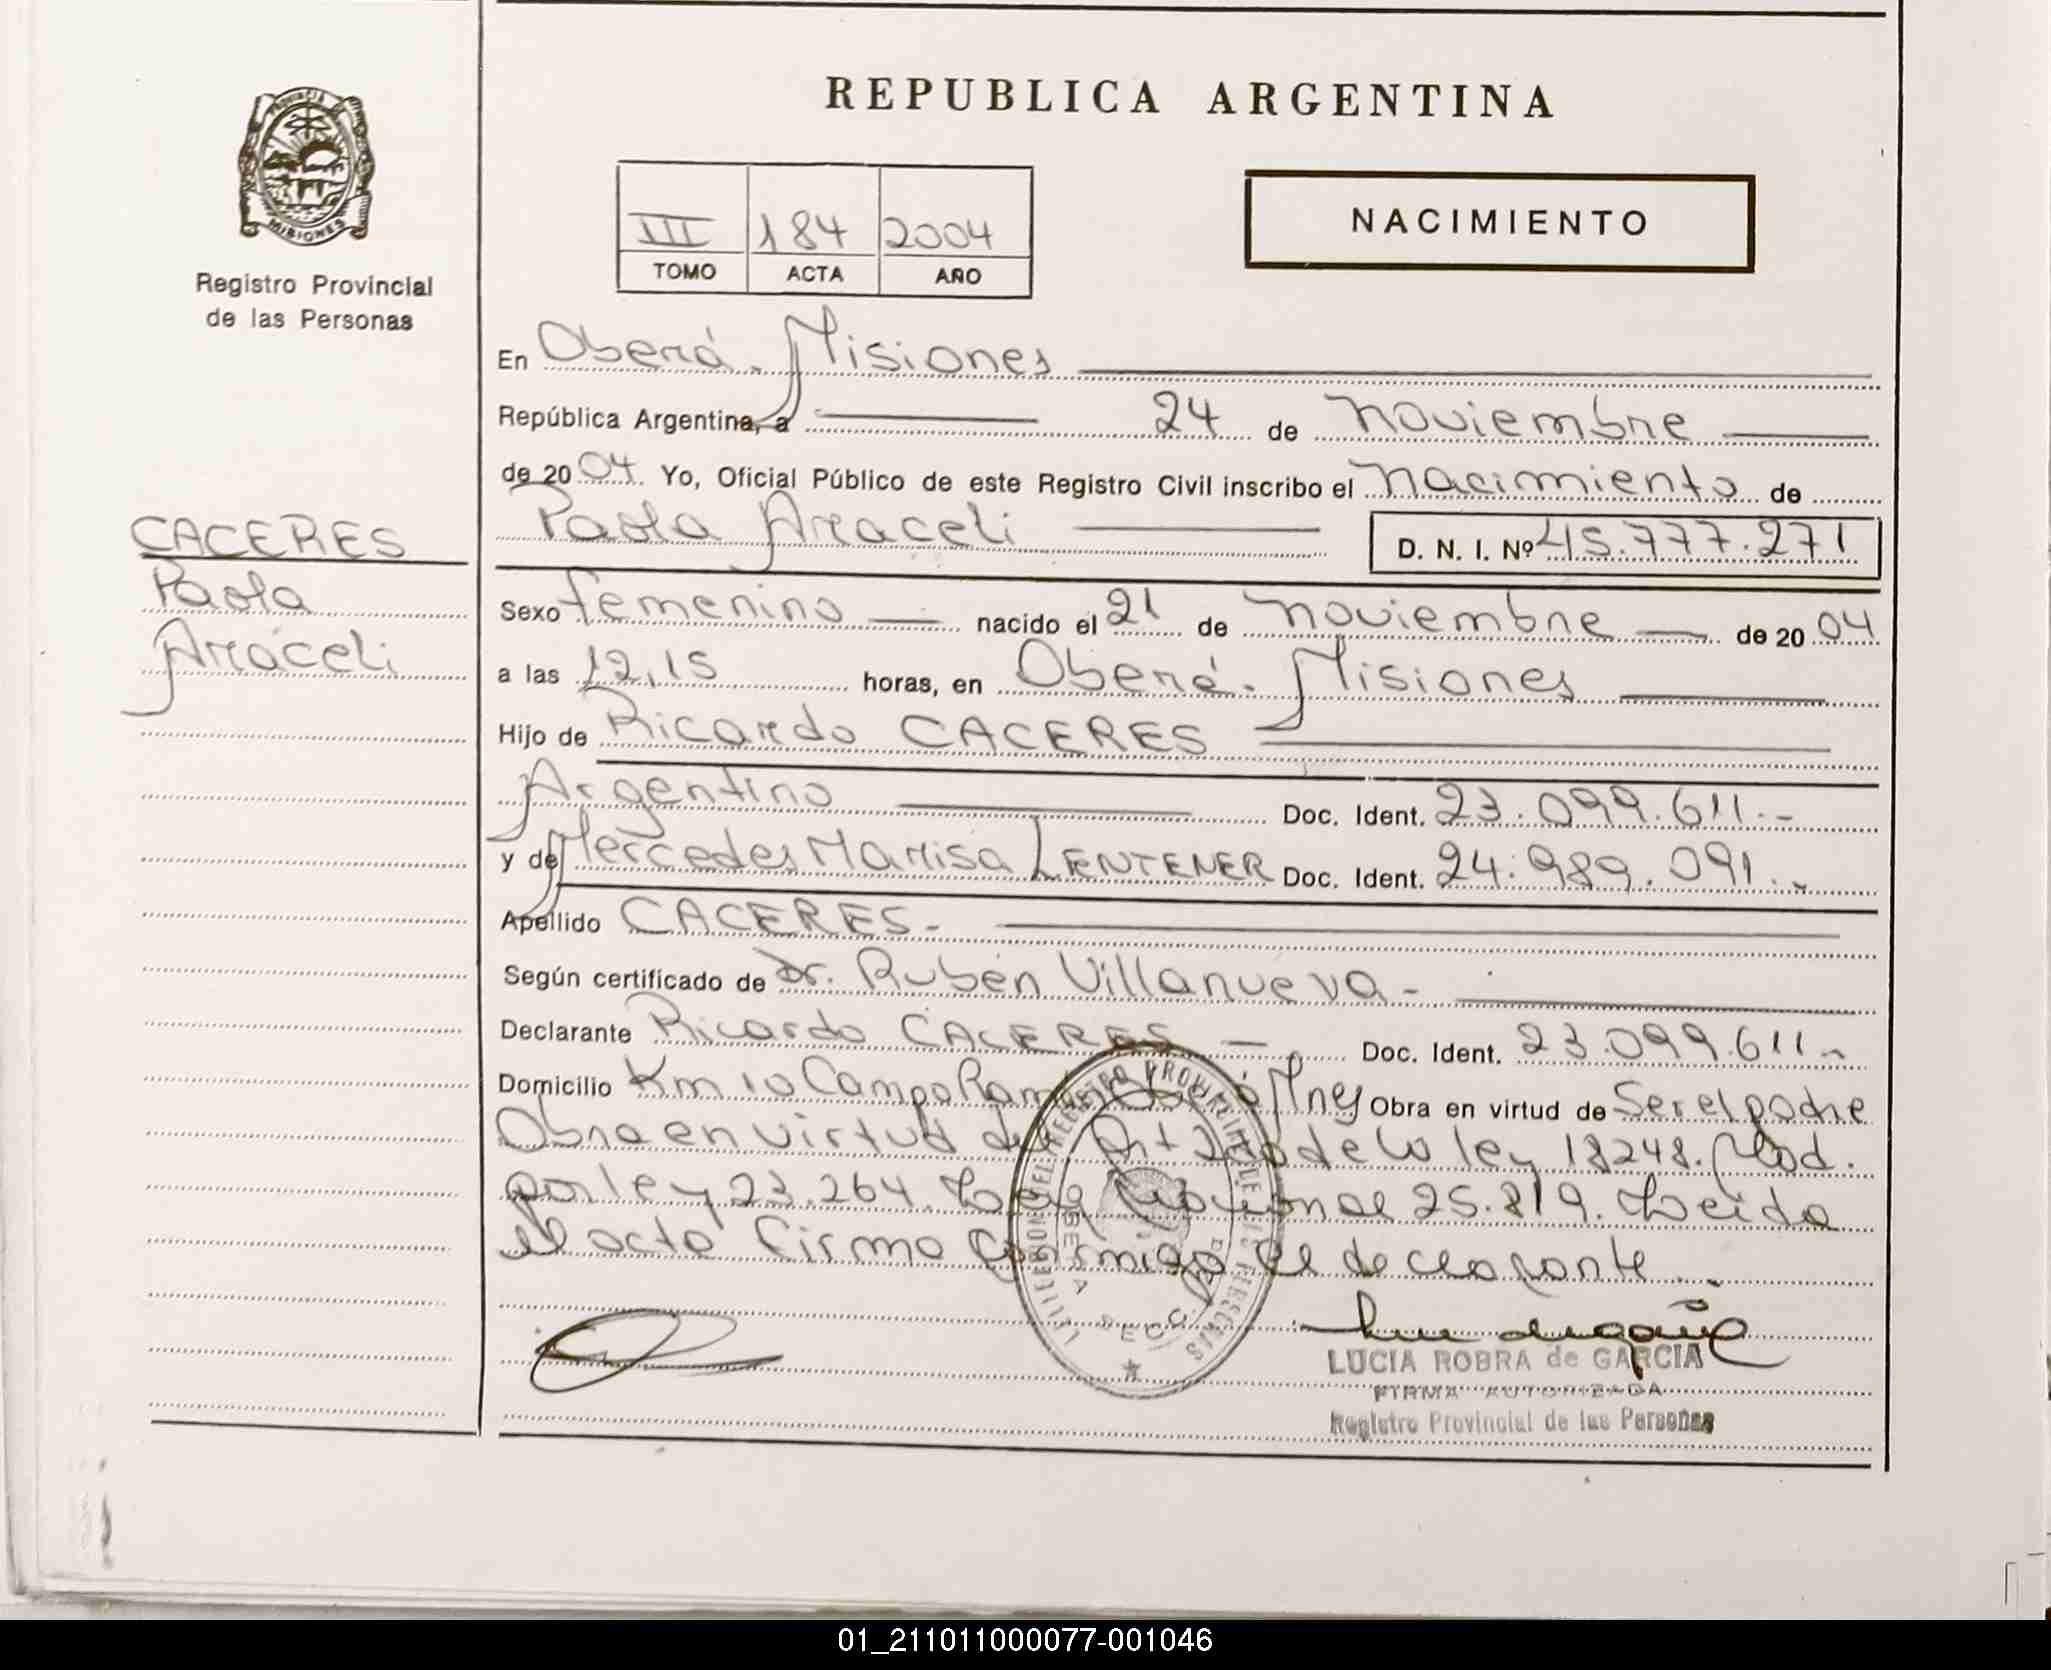 REPUBLICA ARGENTINA
PROVINCIA DE
MISIONES
Registro Provincial
de las Personas
III 184 2004
TOMO ACTA AÑO
NACIMIENTO
En Oberá. Misiones
República Argentina, a 24 de Noviembre
de 2004 Yo, Oficial Público de este Registro Civil inscribo el Nacimiento de
Paola Araceli D. N. I. Nº 45.777.271
CACERES
Paola
Araceli
Sexo femenino nacido el 21 de Noviembre de 2004
a las 12,15 horas, en Oberá. Misiones
Hijo de Ricardo CACERES
Argentino Doc. Ident. 23.099.611.-
y de Mercedes Marisa LENTENER Doc. Ident. 24.989.091.-
Apellido CACERES.-
Según certificado de Dr. Rubén Villanueva-
Declarante Ricardo CACERES Doc. Ident. 23.099.611.-
Domicilio Km 10 Campo Ramón Mnes Obra en virtud de Ser el padre
Obra en virtud del Art de la ley 18248. Mod.
por ley 23.264. Ley Nacional 25.819. Leida
el acta firma conmigo el declarante.
OBERA SECC.
LUCIA ROBRA de GARCIA
FIRMA AUTORIZADA
Registro Provincial de las Personas
01_211011000077-001046